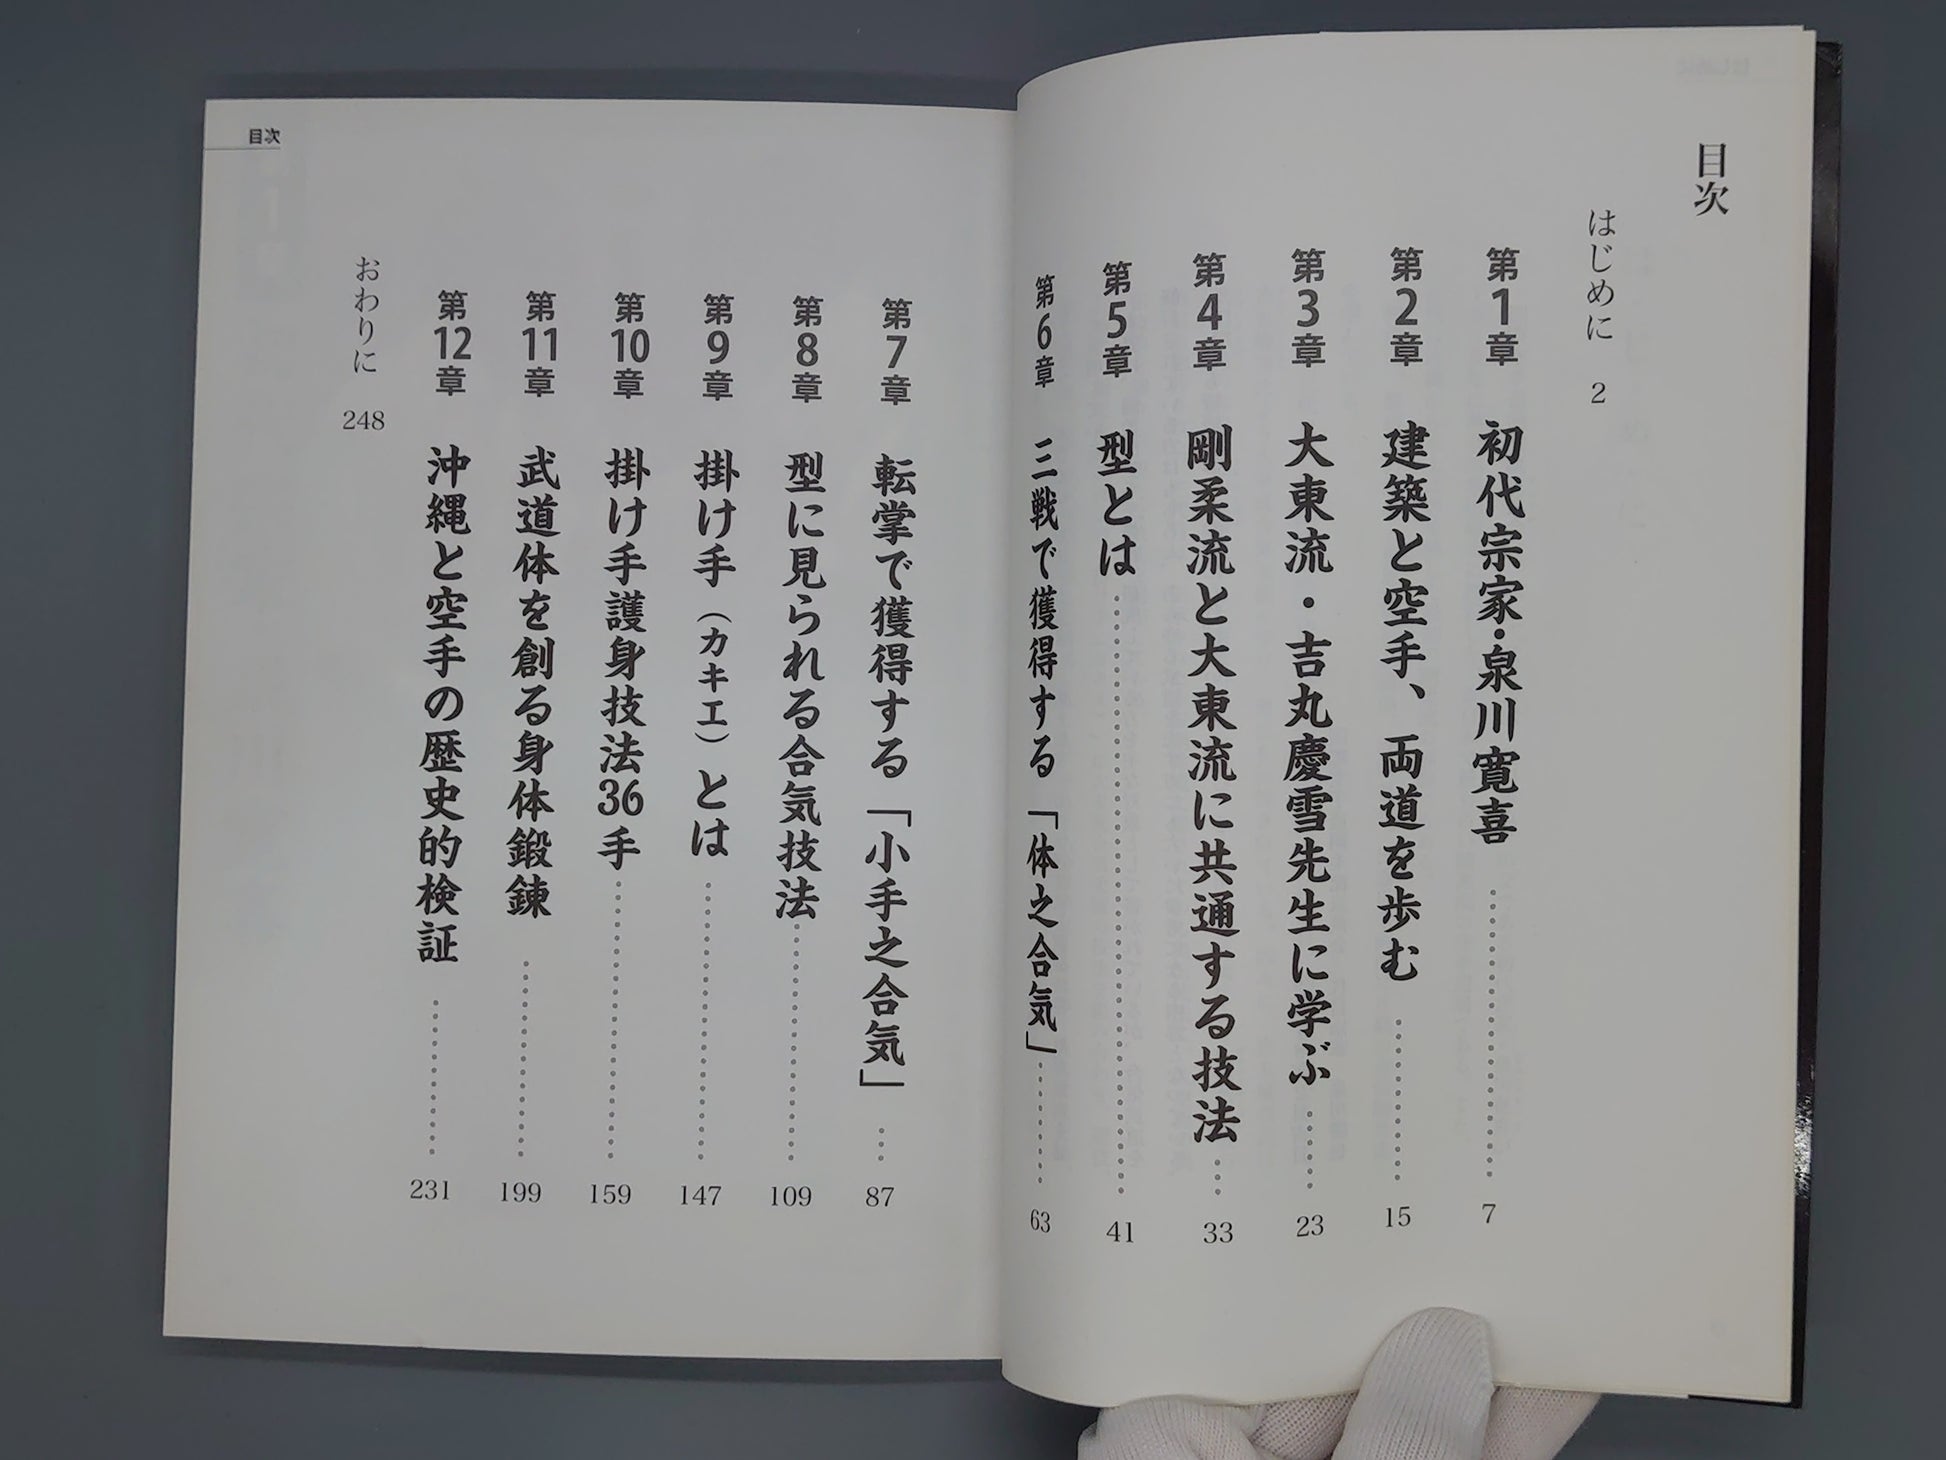 目次
はじめに 2
第1章 初代宗家・泉川寛喜 7
第2章 建築と空手、両道を歩む 15
第3章 大東流・吉丸慶雪先生に学ぶ 23
第4章 剛柔流と大東流に共通する技法 33
第5章 型とは 41
第6章 三戦で獲得する「体之合気」 63
第7章 転掌で獲得する「小手之合気」 87
第8章 型に見られる合気技法 109
第9章 掛け手（カキエ）とは 147
第10章 掛け手護身技法36手 159
第11章 武道体を創る身体鍛錬 199
第12章 沖縄と空手の歴史的検証 231
おわりに 248
目次